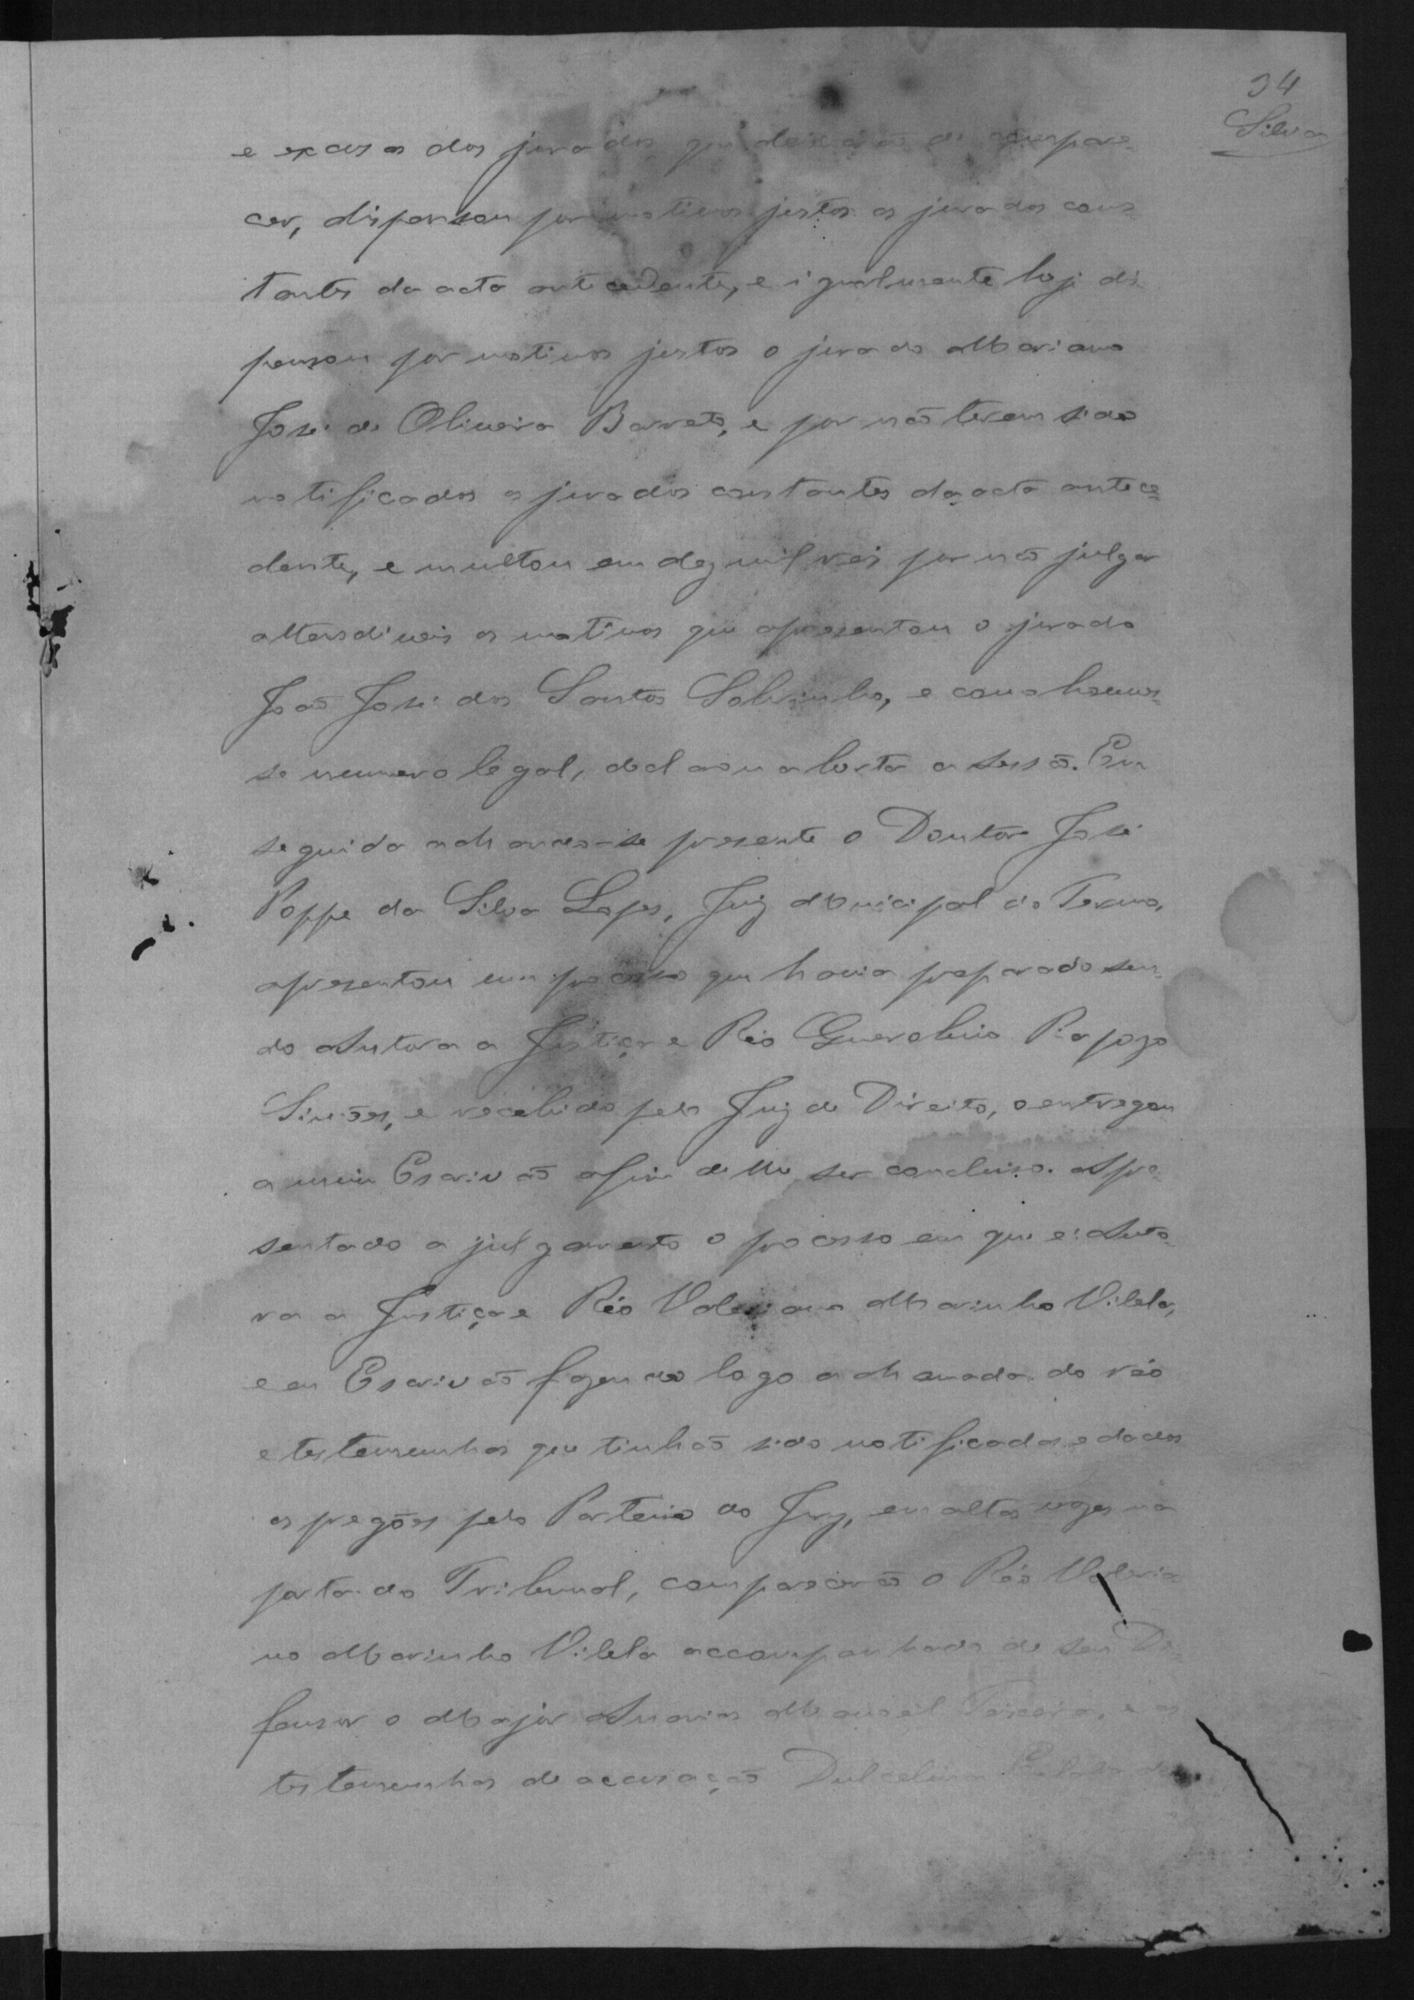 34
Silva
e escusas dos jurados que deixarão de compare-
cer, dispensou por motivos justos os jurados cons-
tantes da acta antecedente, e igualmente hoje dis-
pensou por motivos justos o jurado Mariano
José de Oliveira Barreto, e por não terem sido
notificados os jurados constantes da acta antece-
dente, e multou em dez mil reis por não julgar
attendiveis os motivos que apresentou o jurado
João José dos Santos Sobrinho, e como houves-
se numero legal, declarou aberta a sessão. Em
seguida achando-se presente o Doutor José
Poppe da Silva Lopes, Juiz Municipal do Termo,
apresentou um processo que havia preparado sen-
do Autora a Justiça e Réo Rapozo
Simões, e recebido pelo Juiz de Direito, o entregou
a mim Escrivão afim de lhe ser concluso. Apre-
sentado a julgamento o processo em que é Auto-
ra a Justiça e Réo Valeriano Marinho Vilela,
e eu Escrivão fazendo logo a chamada do réo
e testemunhas que tinhão sido notificadas e dados
os pregões pelo Porteiro do Jury, em altas vozes na
porta do Tribunal, comparecerão o Réo Valeria-
no Marinho Vilela accompanhado de seu De-
fensor o Major Manoel Teixeira, e as
testemunhas de accusação